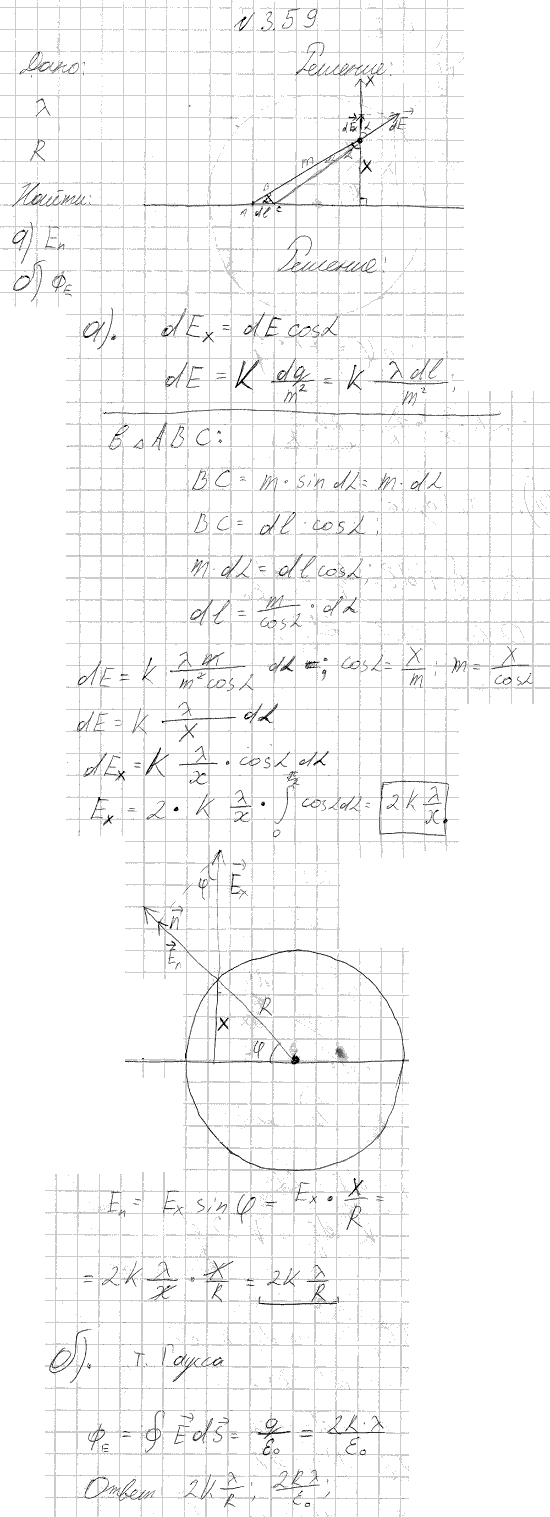 N 3.59
Дано:
Решение:
λ
R
Найти:
а) Eₙ
б) Φ_E
X
dEₓ α dE⃗
m
X
A dl C
Решение:
а). dEₓ = dE cosα
dE = K dq/m² = K λdl/m²;
В △ABC:
BC = m · sin dα = m · dα
BC = dl · cosα;
m · dα = dl cosα;
dl = m/cosα · dα
dE = K λm/(m² cosα) dα ; cosα = X/m ; m = X/cosα
dE = K λ/X dα
dEₓ = K λ/x · cosα dα
Eₓ = 2 · K λ/x · ∫₀^(π/2) cosα dα = 2K λ/x .
φ E⃗ₓ
n⃗
E⃗ₙ
R
X
φ
Eₙ = Eₓ sin φ = Eₓ · X/R =
= 2K λ/x · X/R = 2K λ/R
б). т. Гаусса
Φ_E = ∮ E⃗ dS⃗ = q/ε₀ = 2R·λ/ε₀
Ответ 2K λ/R ; 2Rλ/ε₀ ;